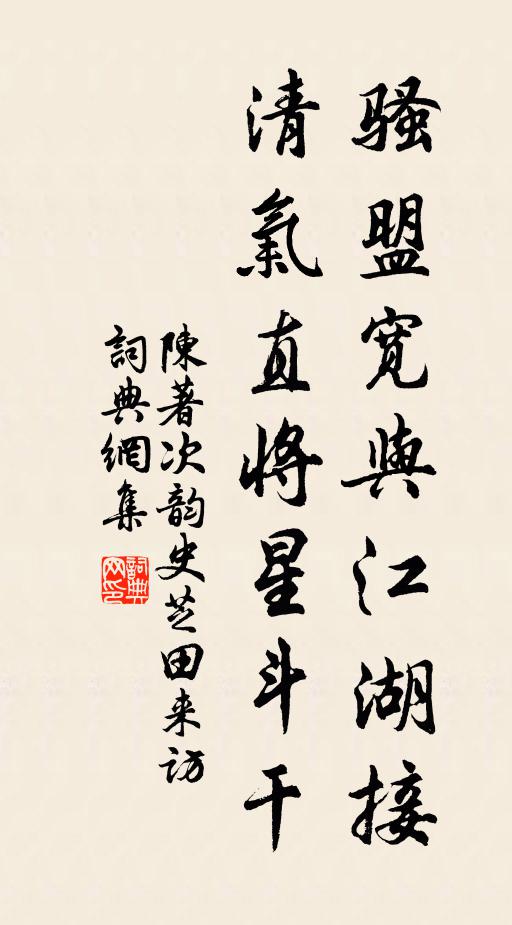 騷盟寬與江湖接
清氣直將星斗干
陳著次韵史芝田来访
詞典網集
詞典网印